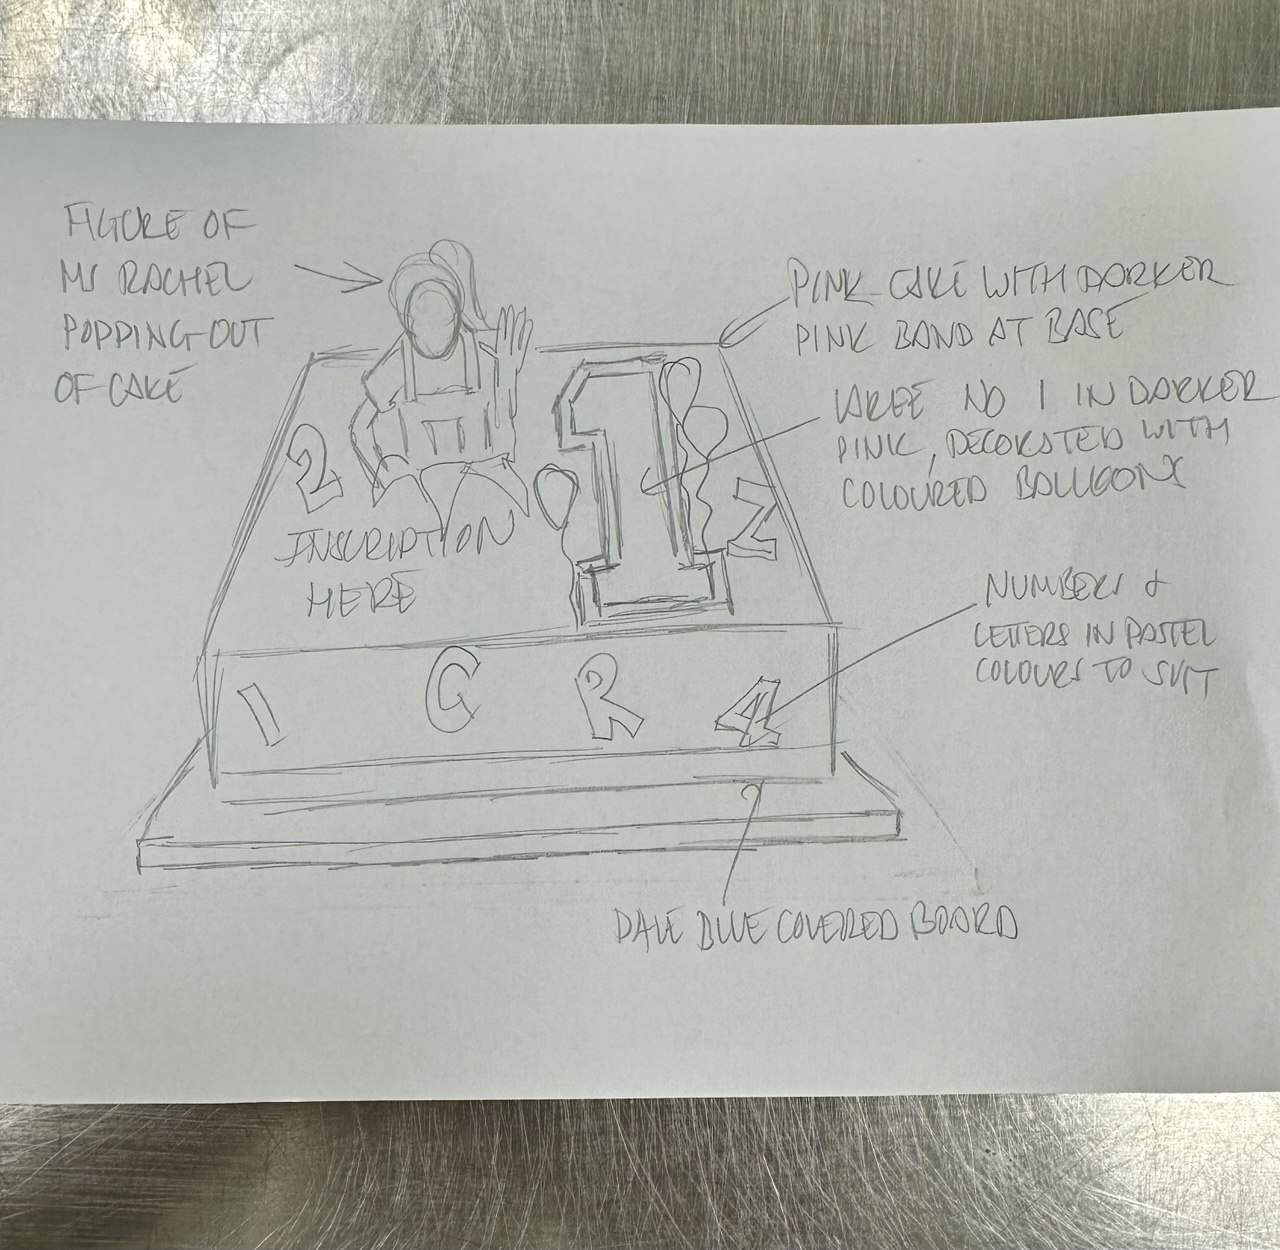 FIGURE OF
MS RACHEL
POPPING OUT
OF CAKE
PINK CAKE WITH DARKER
PINK BAND AT BASE
LARGE NO 1 IN DARKER
PINK, DECORATED WITH
COLOURED BALLOONS
2
1
3
INSCRIPTION
HERE
NUMBERS &
LETTERS IN PASTEL
COLOURS TO SUIT
1 G R 4
PALE BLUE COVERED BOARD